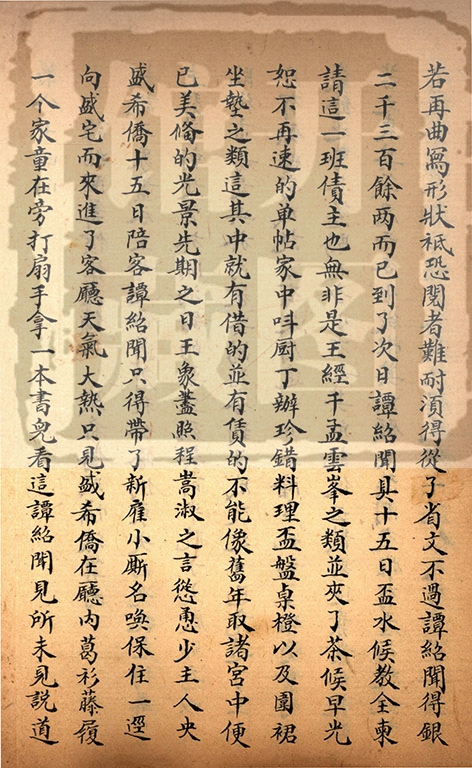 若再曲寫形狀祗恐閱者難耐湏得從了省文不過譚紹聞得銀
二千三百餘两而已到了次日譚紹聞具十五日盃水候教全柬
請這一班債主也無非是王經千孟雲峯之類並夾了茶候早光
恕不再速的单帖家中呌厨丁辦珍錯料理盃盤桌櫈以及圍裙
坐墊之類這其中就有借的並有賃的不能像舊年取諸宮中便
已美備的光景先期之日王象藎照程嵩淑之言慫恿少主人央
盛希僑十五日陪客譚紹聞只得帶了新雇小厮名喚保住一逕
向盛宅而來進了客廳天氣大熱只見盛希僑在廳內葛衫藤履
一个家童在旁打扇手拿一本書兒看這譚紹聞見所未見説道